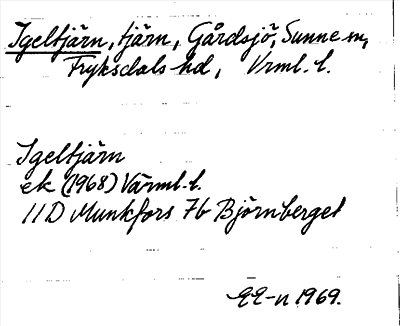 Igeltjärn, tjärn, Gårdsjö, Sunne sn,
Fryksdals hd, Vrml. l.
Igeltjärn
ek (1968) Värml. l.
11D Munkfors 7b Björnberget
1969.